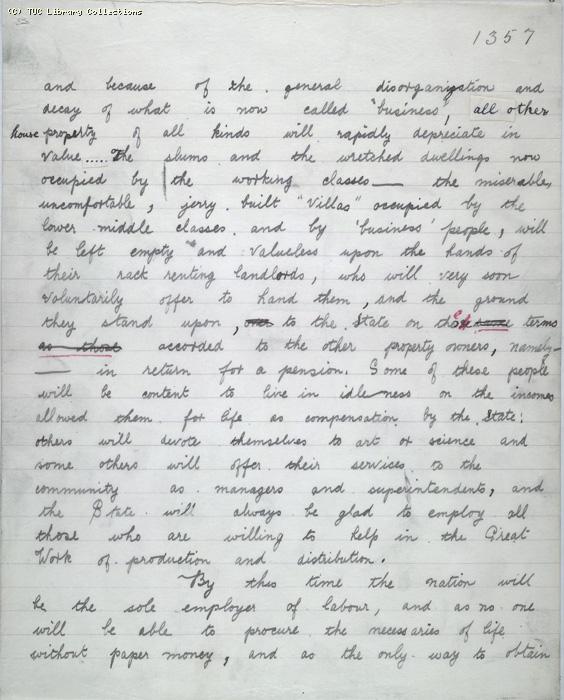 (C) TUC Library Collections
1357
and because of the general disorganization and
decay of what is now called "business", all other
house property of all kinds will rapidly depreciate in
value..... The slums and the wretched dwellings now
occupied by the working classes — the miserable,
uncomfortable, jerry built "villas" occupied by the
lower middle classes and by 'business' people, will
be left empty and valueless upon the hands of
their rack renting landlords, who will very soon
voluntarily offer to hand them, and the ground
they stand upon, to the State on those same terms
as those accorded to the other property owners, namely—
— in return for a pension. Some of these people
will be content to live in idleness on the incomes
allowed them for life as compensation by the State:
others will devote themselves to art or science and
some others will offer their services to the
community as managers and superintendents, and
the State will always be glad to employ all
those who are willing to help in the Great
Work of production and distribution.
By this time the nation will
be the sole employer of labour, and as no one
will be able to procure the necessaries of life
without paper money, and as the only way to obtain